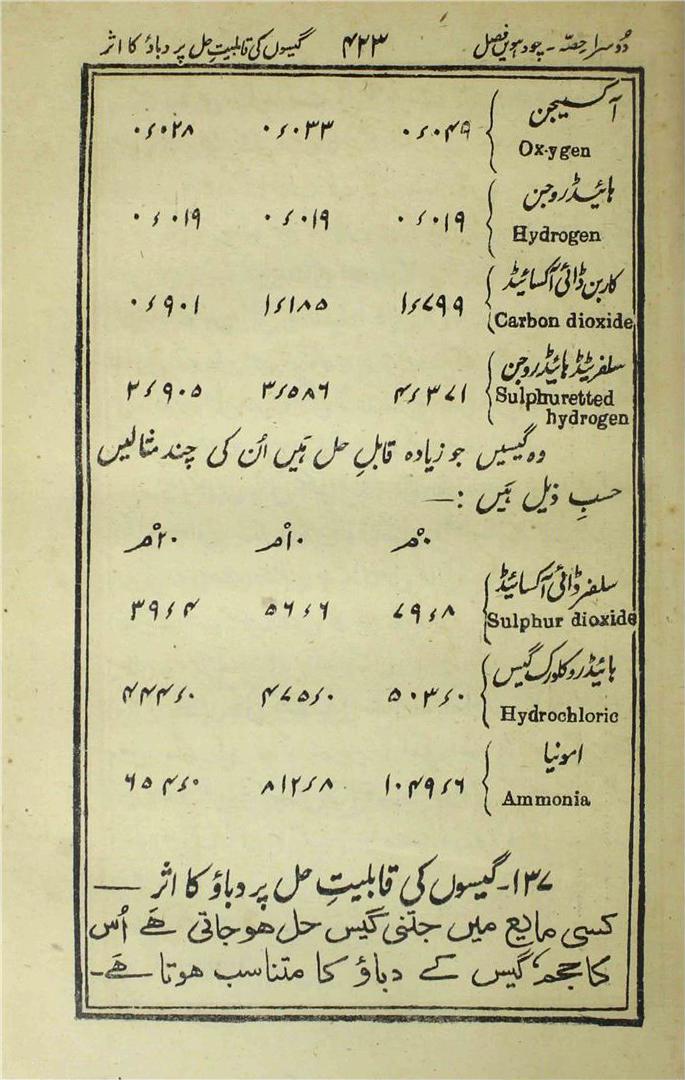 دُوسرا حصّہ - چودہویں فصل ۴۲۳ گیسوں کی قابلیتِ حل پر دباؤ کا اثر
آکسیجن
Oxygen
۰ء۰۴۹ ۰ء۰۳۳ ۰ء۰۲۸
ہائیڈروجن
Hydrogen
۰ء۰۱۹ ۰ء۰۱۹ ۰ء۰۱۹
کاربن ڈائی آکسائیڈ
Carbon dioxide
۱ء۷۹۹ ۱ء۱۸۵ ۰ء۹۰۱
سلفرٹیڈ ہائیڈروجن
Sulphuretted
hydrogen
۴ء۳۷۱ ۳ء۵۸۶ ۲ء۹۰۵
وہ گیسیں جو زیادہ قابلِ حل ہَیں اُن کی چند مثالیں
حسبِ ذیل ہَیں :—
۰°م ۱۰°م ۲۰°م
سلفر ڈائی آکسائیڈ
Sulphur dioxide
۷۹ء۸ ۵۶ء۶ ۳۹ء۴
ہائیڈروکلورک گیس
Hydrochloric
۵۰۳ء۰ ۴۷۵ء۰ ۴۴۴ء۰
امونیا
Ammonia
۱۰۴۹ء۶ ۸۱۲ء۸ ۶۵۴ء۰
۱۳۷- گیسوں کی قابلیتِ حل پر دباؤ کا اثر —
کسی مایع میں جتنی گیس حل ہو جاتی ہَے اُس
کا حجم، گیس کے دباؤ کا متناسب ہوتا ہَے۔